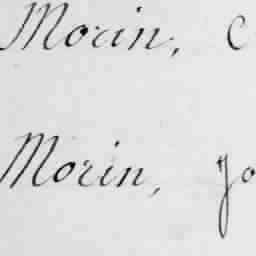 Morin, C
Morin, Jo